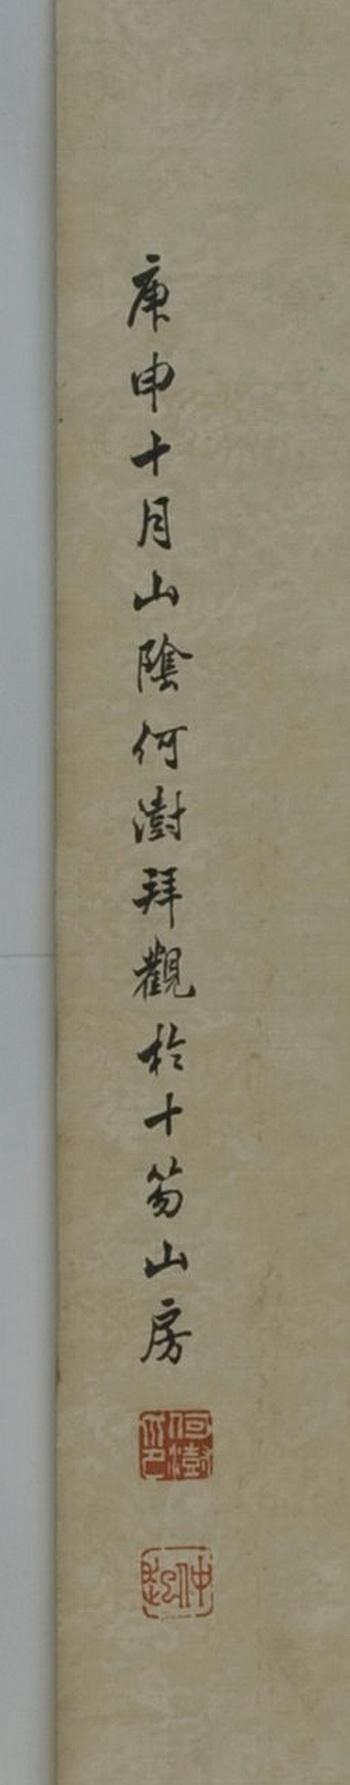 庚申十月山陰何澍拜觀於十笏山房
何澍